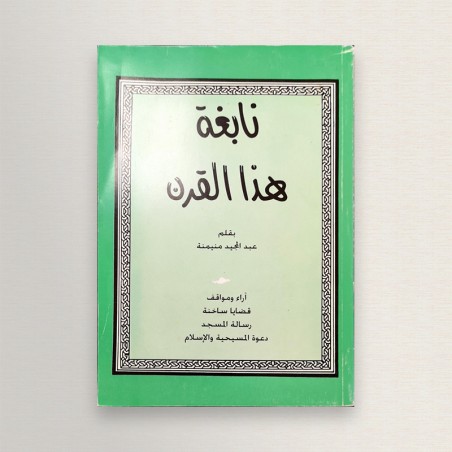 نابغة
هذا القرن
بقلم
عبد المجيد منيمنة
أراء ومواقف
قضايا ساخنة
رسالة المسجد
دعوة المسيحية والإسلام